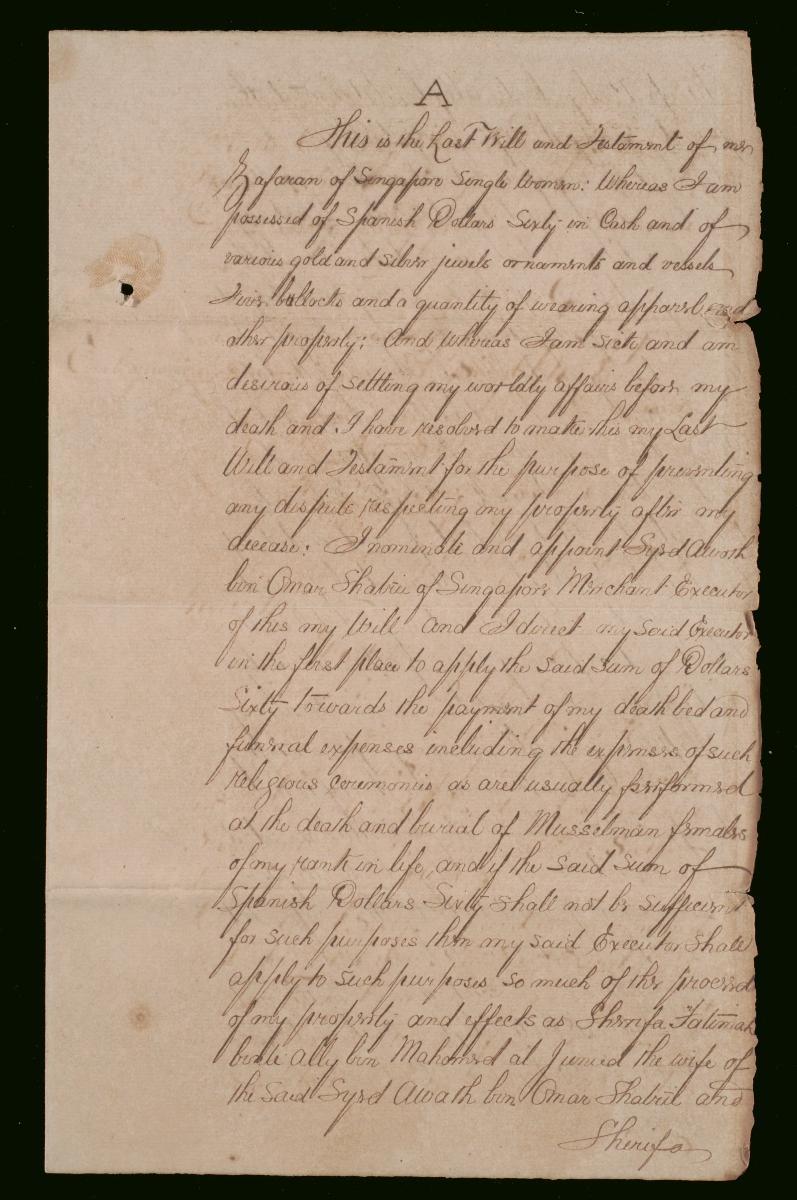 A
This is the Last Will and Testament of me
Zafaran of Singapore Single Woman: Whereas I am
possessed of Spanish Dollars Sixty in Cash and of
various gold and silver jewels ornaments and vessels
Five bullocks and a quantity of wearing apparel and
other property: And whereas I am sick and am
desirous of settling my worldly affairs before my
death and I have resolved to make this my Last
Will and Testament for the purpose of preventing
any dispute respecting my property after my
decease: I nominate and appoint Syed Awath
bin Omar Shabrii of Singapore Merchant Executor
of this my Will and I direct my said Executor
in the first place to apply the said sum of Dollars
Sixty towards the payment of my death bed and
funeral expenses including the expenses of such
religious ceremonies as are usually performed
at the death and burial of Musselman females
of my rank in life, and if the said sum of
Spanish Dollars Sixty shall not be sufficient
for such purposes then my said Executor shall
apply to such purposes so much of the proceed
of my property and effects as Sherifa Fatimah
binti Ally bin Mahomed al Junied the wife of
the said Syed Awath bin Omar Shabrii and
Sherifa